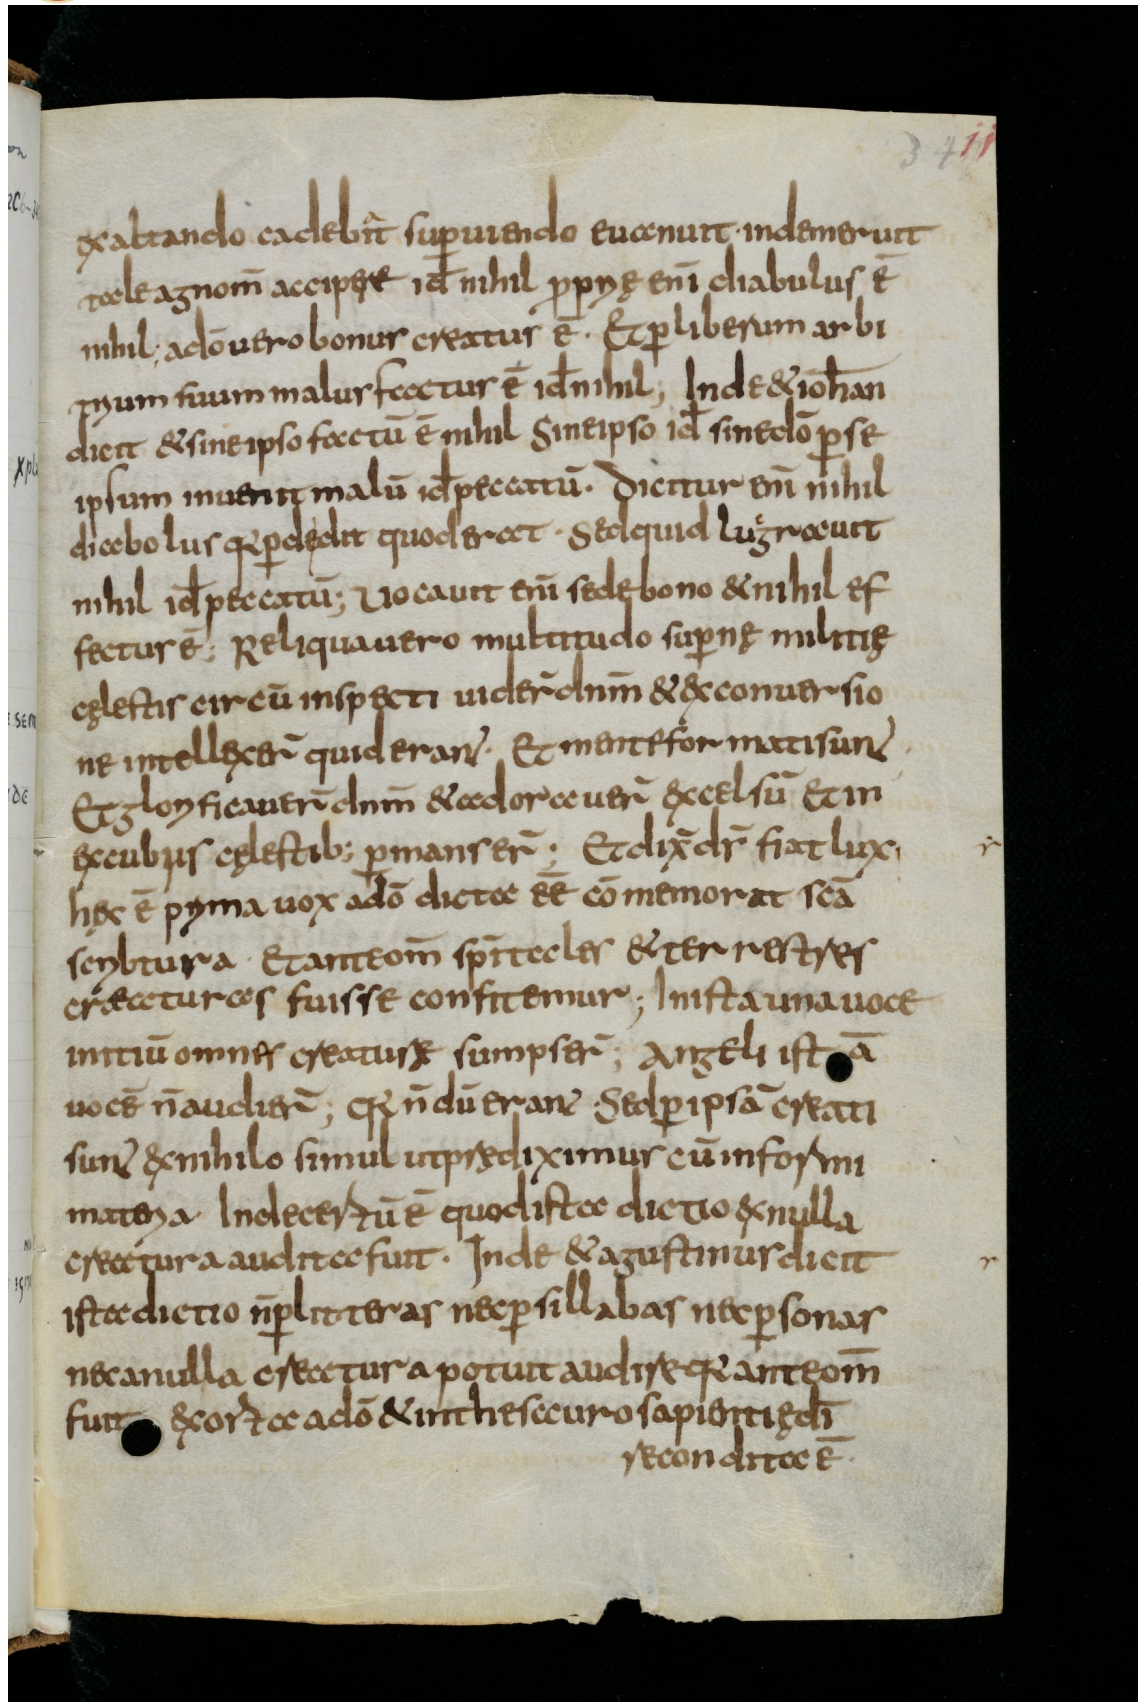 34 11
exaltando cadebat superuiendo euanuit · inde meruit
tale agnom̄ accipere id ÷ nihil proprię enī diabulus ē
nihil; a dō uero bonus creatus ē · Et ꝑ liberum arbi
trium suum malus factus ē id ÷ nihil; Inde & ioħan
dicit & sine ipso factū ē nihil Sine ipso id ÷ sine dō ꝑ se
ipsum inuenit malū id ÷ peccatū · Dicitur enī nihil
diabolus qr ꝑdedit quod erat · Sed quid lugrauit
nihil id ÷ peccatū; Uocauit enī se de bono & nihil ef
fectus ē; Reliqua uero multitudo suꝑnę militię
cęlestis circū inspecti uider̄ dnm̄ & ex conuersio
ne intellexer̄ quid eran̄ · Et mente formati sun̄
Et glorificauer̄ dnm̄ & adorauer̄ excelsū Et in
excubiis cęlestib; ꝑmanser̄; Et dix̄ ds̄ fiat lux,
hęc ē prima uox a dō dicta eē cōmemorat scā
scribtura · Et ante om̄ sp̄itales & terrestres
creaturas fuisse confitemur; In ista una uoce
initiū omnes creaturę sumpser̄; Angeli ist ā
uocē n̄ audier̄; qr n̄dū eran̄ · Sed ꝑ ipsā creati
sun̄ ex nihilo simul ut prędiximus cū informi
materia · Inde certū ē quod ista dictio ex nulla
creatura audita fuit · Inde & agustinus dicit
ista dictio n̄ ꝑ litteras nec ꝑ sillabas nec ꝑ sonas
nec a nulla creatura potuit audire qr ante om̄
fuit exorta a dō & in thesauro sapientię dī
recondita ē ·
r
r